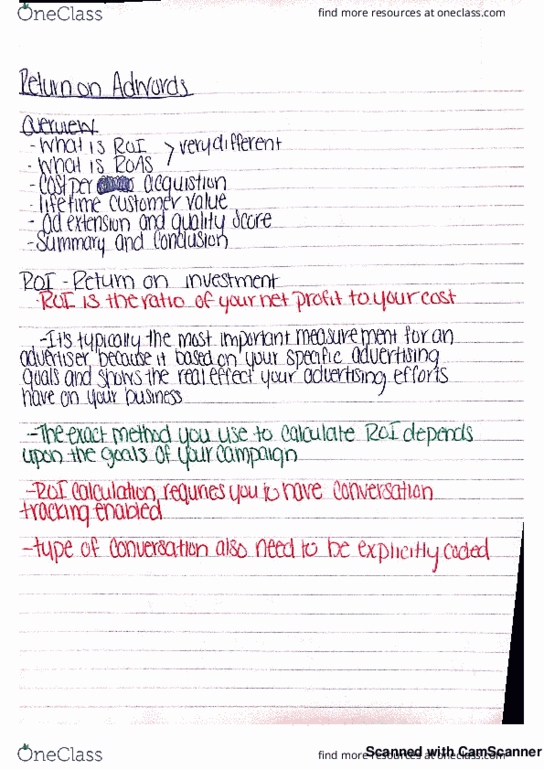 OneClass
find more resources at oneclass.com
Return on Adwords
Overview
- What is ROI > very different
- What is ROAS
- Cost per acquistion
- lifetime customer value
- ad extension and quality score
- Summary and Conclusion
ROI - Return on investment
· ROI is the ratio of your net profit to your cost
- It's typically the most important measurement for an
advertiser because it based on your specific advertising
goals and shows the real effect your advertising efforts
have on your business
- The exact method you use to calculate ROI depends
upon the goals of your campaign
- ROI calculation, requries you to have conversation
tracking enabled
- type of conversation also need to be explicitly coded
OneClass
find more resources at oneclass.com
Scanned with CamScanner